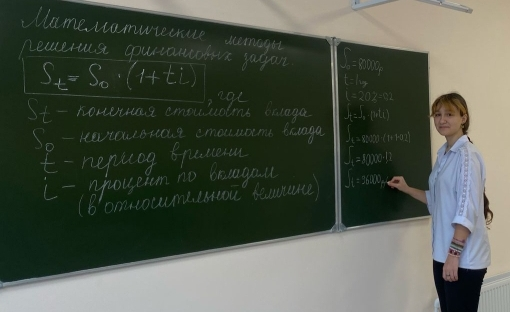 Математические методы
решения финансовых задач.
St = So · (1 + ti)
, где
St – конечная стоимость вклада
So – начальная стоимость вклада
t – период времени
i – процент по вкладам
(в относительной величине)
So = 80000р
t = 1 год
i = 20% = 0.2
St = So · (1+ti)
St = 80000 · (1+1·0.2)
St = 80000 · 1.2
St = 96000р